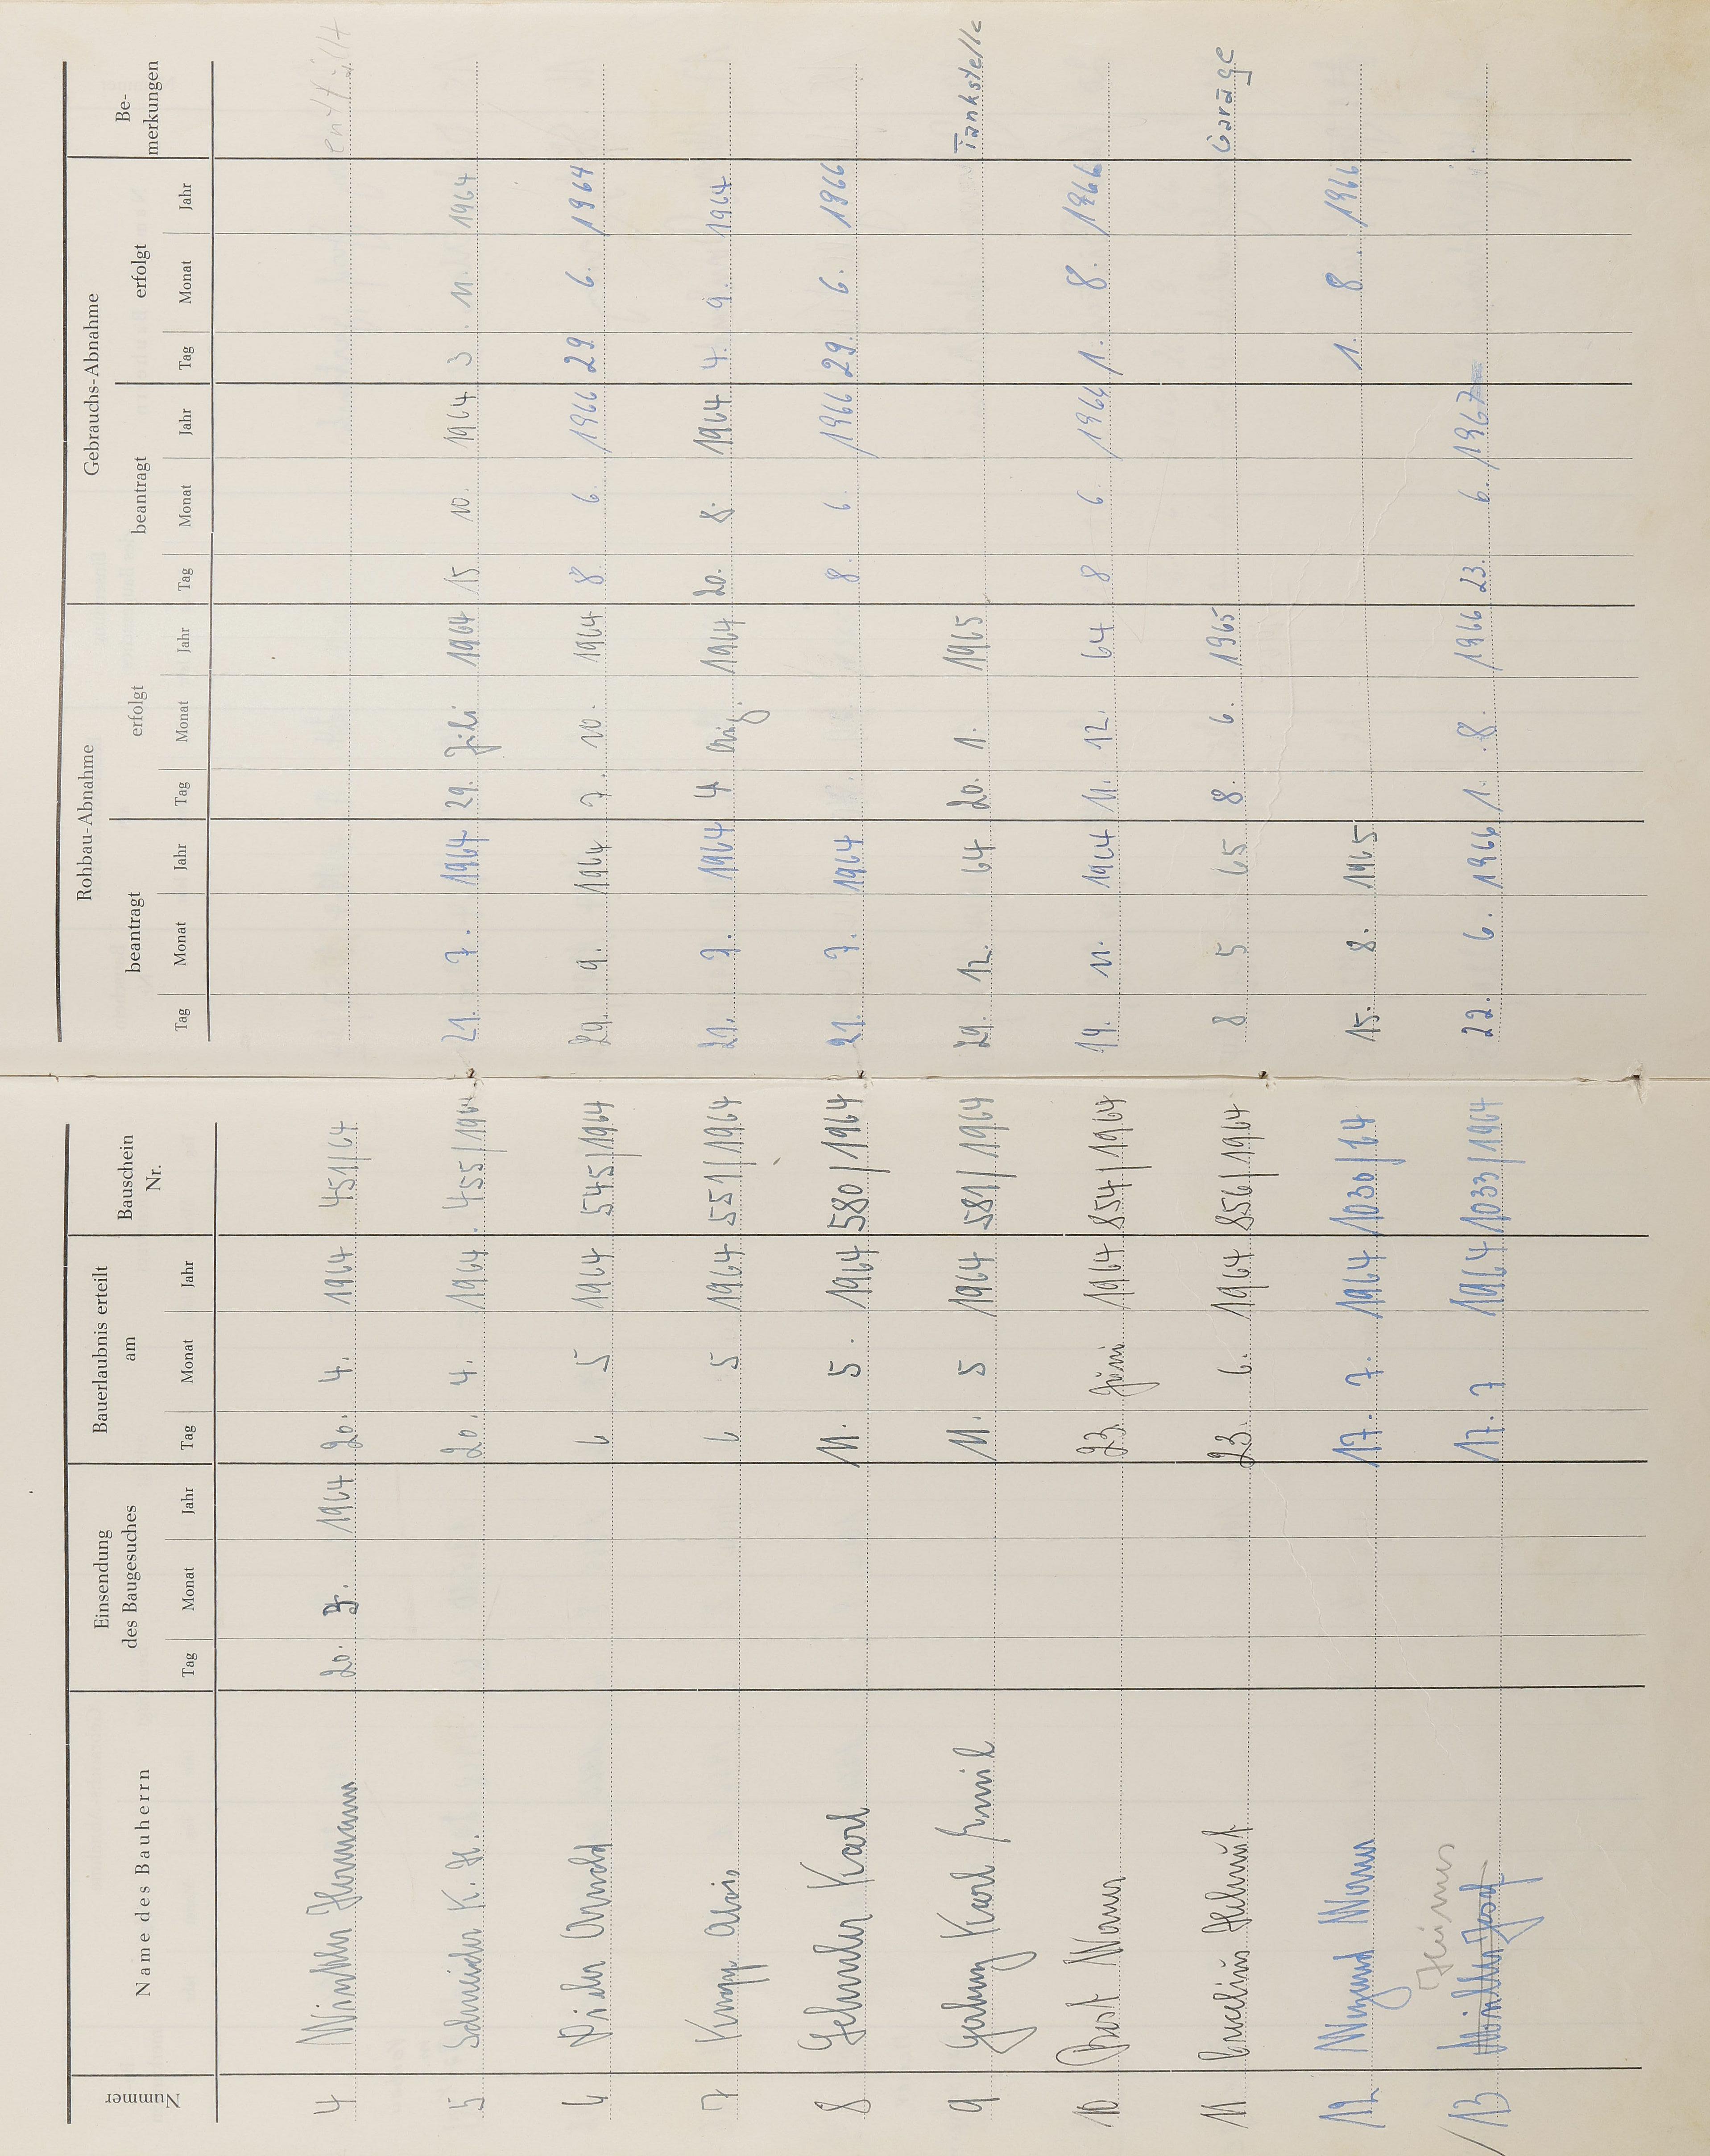 Nummer
Name des Bauherrn
Einsendung
des Baugesuches
Tag Monat Jahr
Bauerlaubnis erteilt
am
Tag Monat Jahr
Bauschein
Nr.
Rohbau-Abnahme
beantragt
Tag Monat Jahr
erfolgt
Tag Monat Jahr
Gebrauchs-Abnahme
beantragt
Tag Monat Jahr
erfolgt
Tag Monat Jahr
Be-
merkungen
4 Hermann 20. 1964 20. 4. 1964 451/64 entfällt
5 Schneider K. H. 20. 4. 1964. 455/1964 21. 7. 1964 29. Juli 1964 15. 10. 1964 3. 11. 1964
6 Arnold 6 5 1964 545/1964 29. 9. 1964 7. 10. 1964 8 6. 1966 29. 6. 1964
7 Knapp Alois 6 5 1964 551/1964 21. 7. 1964 4. Aug. 1964 20. 8. 1964 4. 9. 1964
8 Karl 11. 5. 1964 580/1964 21. 7. 1964 8. 6. 1966 29. 6. 1966
9 Karl Emil 11. 5 1964 581/1964 29. 12. 64 20. 1. 1965 Tankstelle
10 Werner 23. Juni 1964 854/1964 19. 11. 1964 11. 12. 64 8 6 1964 1. 8. 1966
11 Helmut 23. 6. 1964 856/1964 8 5 65 8. 6. 1965 Garage
12 17. 7. 1964 1030/64 15. 8. 1965 1. 8. 1966
Heinus
13 Josef 17. 7 1964 1033/1964 22. 6. 1966 1. 8. 1966 23. 6. 1967